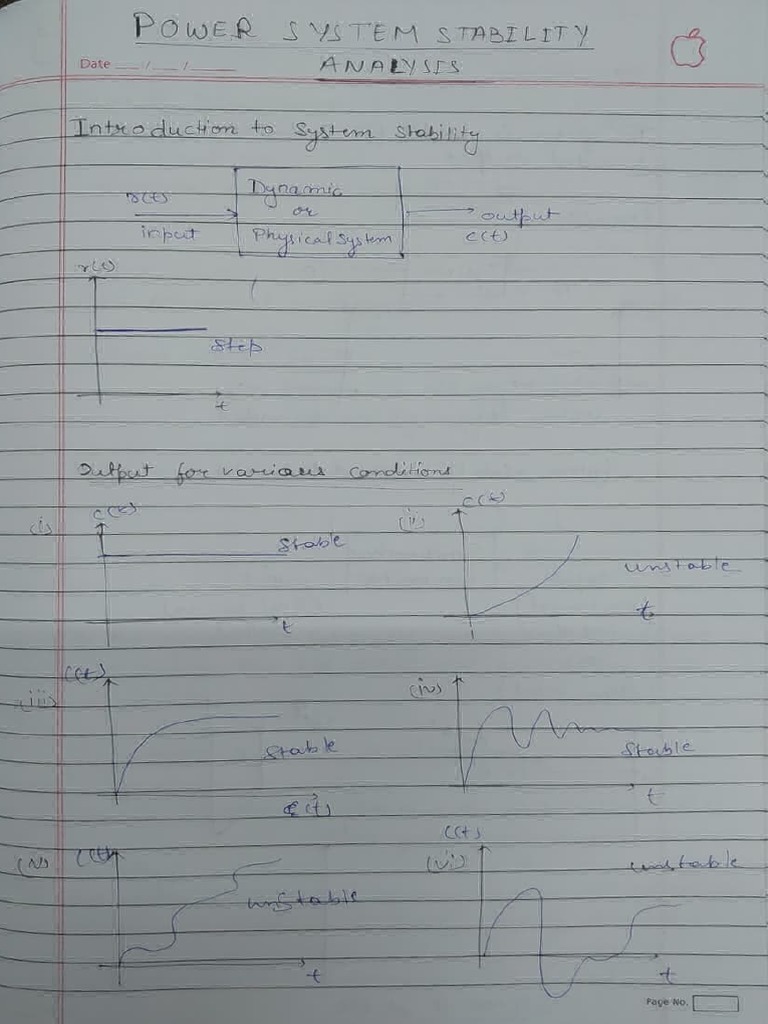 POWER SYSTEM STABILITY
Date __/__/____
ANALYSIS
Introduction to System Stability
r(t)
input
Dynamic
or
Physical System
output
c(t)
r(t)
Step
t
Output for various conditions
(i)
c(t)
Stable
t
(ii)
c(t)
unstable
t
(iii)
c(t)
Stable
c(t)
(iv)
Stable
t
(v)
c(t)
unstable
t
(vi)
c(t)
unstable
t
Page No.